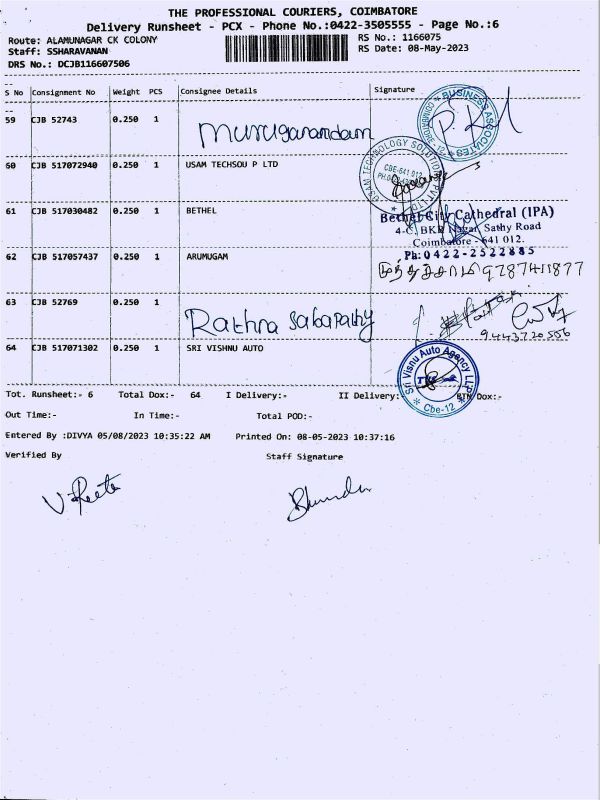 THE PROFESSIONAL COURIERS, COIMBATORE
Delivery Runsheet - PCX - Phone No.:0422-3505555 - Page No.:6
Route: ALAMUNAGAR CK COLONY RS No.: 1166075
Staff: SSHARAVANAN RS Date: 08-May-2023
DRS No.: DCJB116607506
S No Consignment No Weight PCS Consignee Details Signature
59 CJB 52743 0.250 1 Muruganandam
BUSINESS ASSOCIATES COIMBATORE - 12
60 CJB 517072940 0.250 1 USAM TECHSOU P LTD
USAM TECHNOLOGY SOLUTIONS PVT LTD
CBE-641 012
61 CJB 517030482 0.250 1 BETHEL
Bethel City Cathedral (IPA)
4-C, BKR Nagar, Sathy Road
Coimbatore - 641 012.
Ph: 0422-2522885
62 CJB 517057437 0.250 1 ARUMUGAM
முத்துசாமி 9787411877
63 CJB 52769 0.250 1 Rathna Sabapathy
9443720556
64 CJB 517071302 0.250 1 SRI VISHNU AUTO
Sri Visnu Auto Agency LLP
Cbe-12
Tot. Runsheet:- 6 Total Dox:- 64 I Delivery:- II Delivery:- Dox:-
Out Time:- In Time:- Total POD:-
Entered By :DIVYA 05/08/2023 10:35:22 AM Printed On: 08-05-2023 10:37:16
Verified By Staff Signature